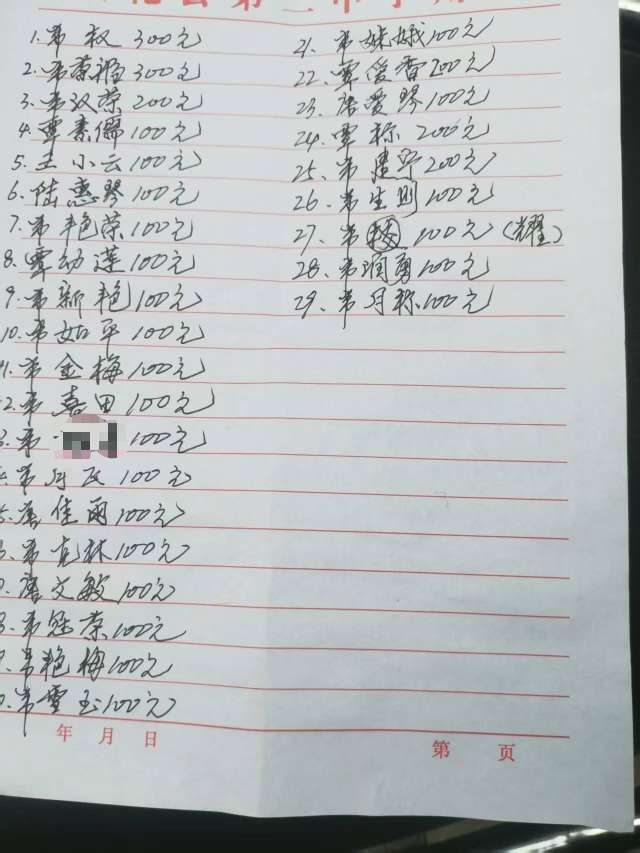 1. 韦权 300元
2. 韦荣福 300元
3. 韦汉荣 200元
4. 覃素儒 100元
5. 王小云 100元
6. 陆惠琴 100元
7. 韦艳荣 100元
8. 覃幼莲 100元
9. 韦新艳 100元
10. 韦如平 100元
11. 韦金梅 100元
2. 韦嘉田 100元
3. 韦 100元
韦月 100元
唐佳雨 100元
韦克林 100元
唐文敏 100元
韦冠荣 100元
韦艳梅 100元
韦雪玉 100元
年 月 日
21. 韦娥 100元
22. 覃爱香 200元
23. 唐爱琴 100元
24. 覃标 200元
25. 韦建宁 200元
26. 韦生则 100元
27. 韦 100元 (耀)
28. 韦润勇 100元
29. 韦月秋 100元
第 页